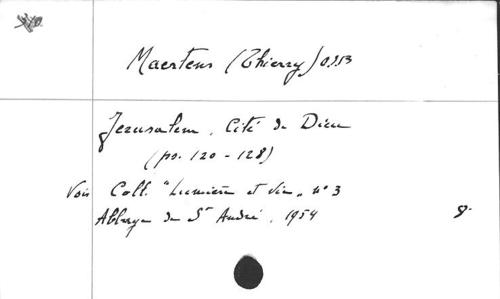 Maertens (Thierry) O.S.B
Jerusalem, Cité de Dieu
(pp. 120 - 128)
Voir Coll. "Lumière et Vie" n° 3
Abbaye de St André, 1954
8°